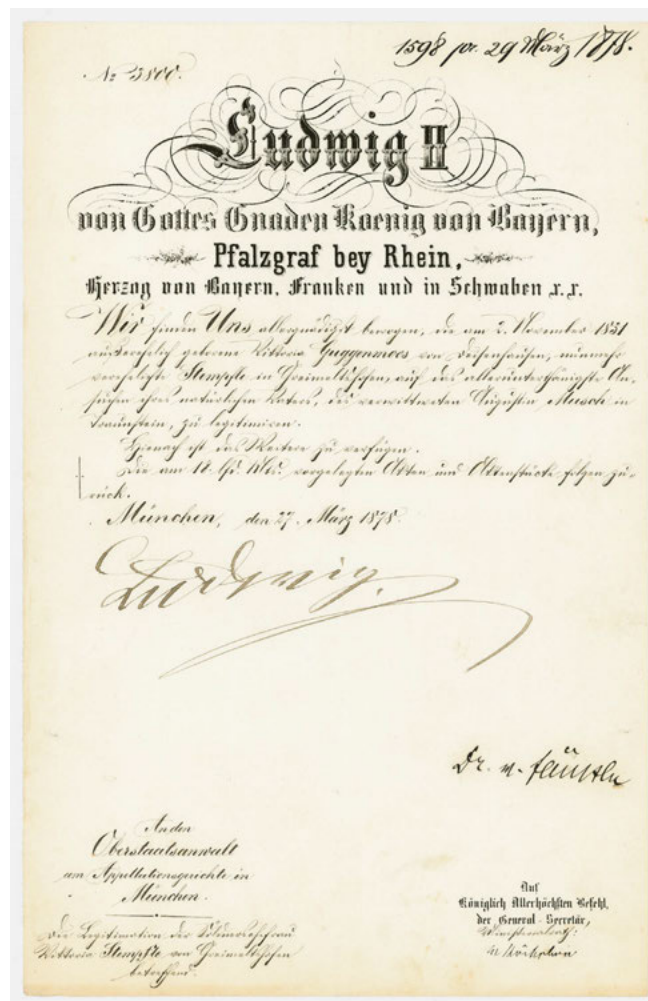 1598 pr. 29 März 1878.
№ 3800.
Ludwig II
von Gottes Gnaden Koenig von Bayern,
Pfalzgraf bey Rhein,
Herzog von Bayern, Franken und in Schwaben x. x.
Wir finden Uns allergnädigst bewogen, die am 2. November 1831
außerehelich geborene Viktoria Guggenmoos von Deisenhausen, nunmehr
verehelichte Stempfle in Greimeltshofen, auf das allerunterthänigste An-
suchen ihres natürlichen Vaters, des verwittweten Augustin Musch in
Traunstein, zu legitimiren.
Hienach ist das Weitere zu verfügen.
Die am 18. lfd. Mts. vorgelegten Akten und Aktenstücke folgen zu-
rück.
München, den 27. März 1878.
Ludwig.
Dr. v. Fäustle
An den
Oberstaatsanwalt
am Appellationsgerichte in
München.
Die Legitimation der
Viktoria Stempfle von Greimeltshofen
betreffend.
Auf
Königlich Allerhöchsten Befehl,
der General-Secretär,
Ministerialrath: